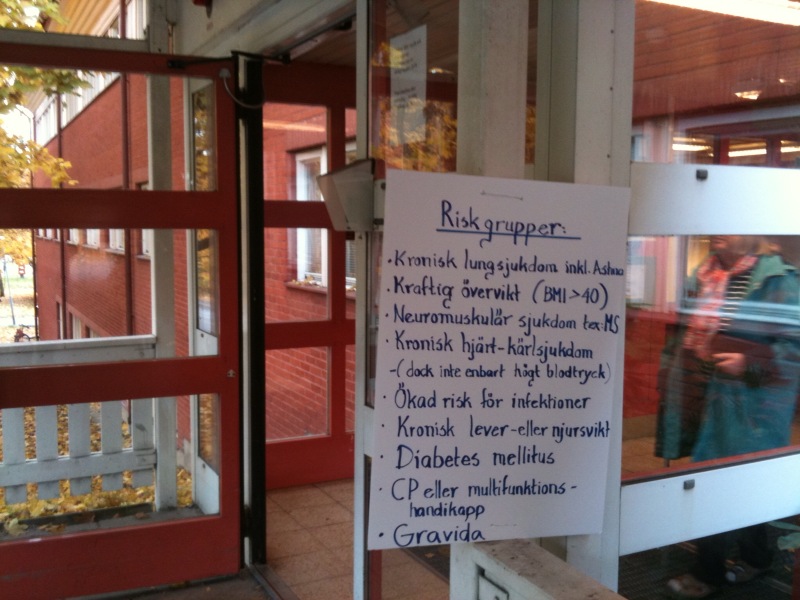 Riskgrupper:
• Kronisk lungsjukdom inkl. Astma
• Kraftig övervikt (BMI > 40)
• Neuromuskulär sjukdom tex: MS
• Kronisk hjärt-kärlsjukdom
-( dock inte enbart högt blodtryck)
• Ökad risk för infektioner
Kronisk lever- eller njursvikt
• Diabetes mellitus
• CP eller multifunktions-
handikapp
• Gravida